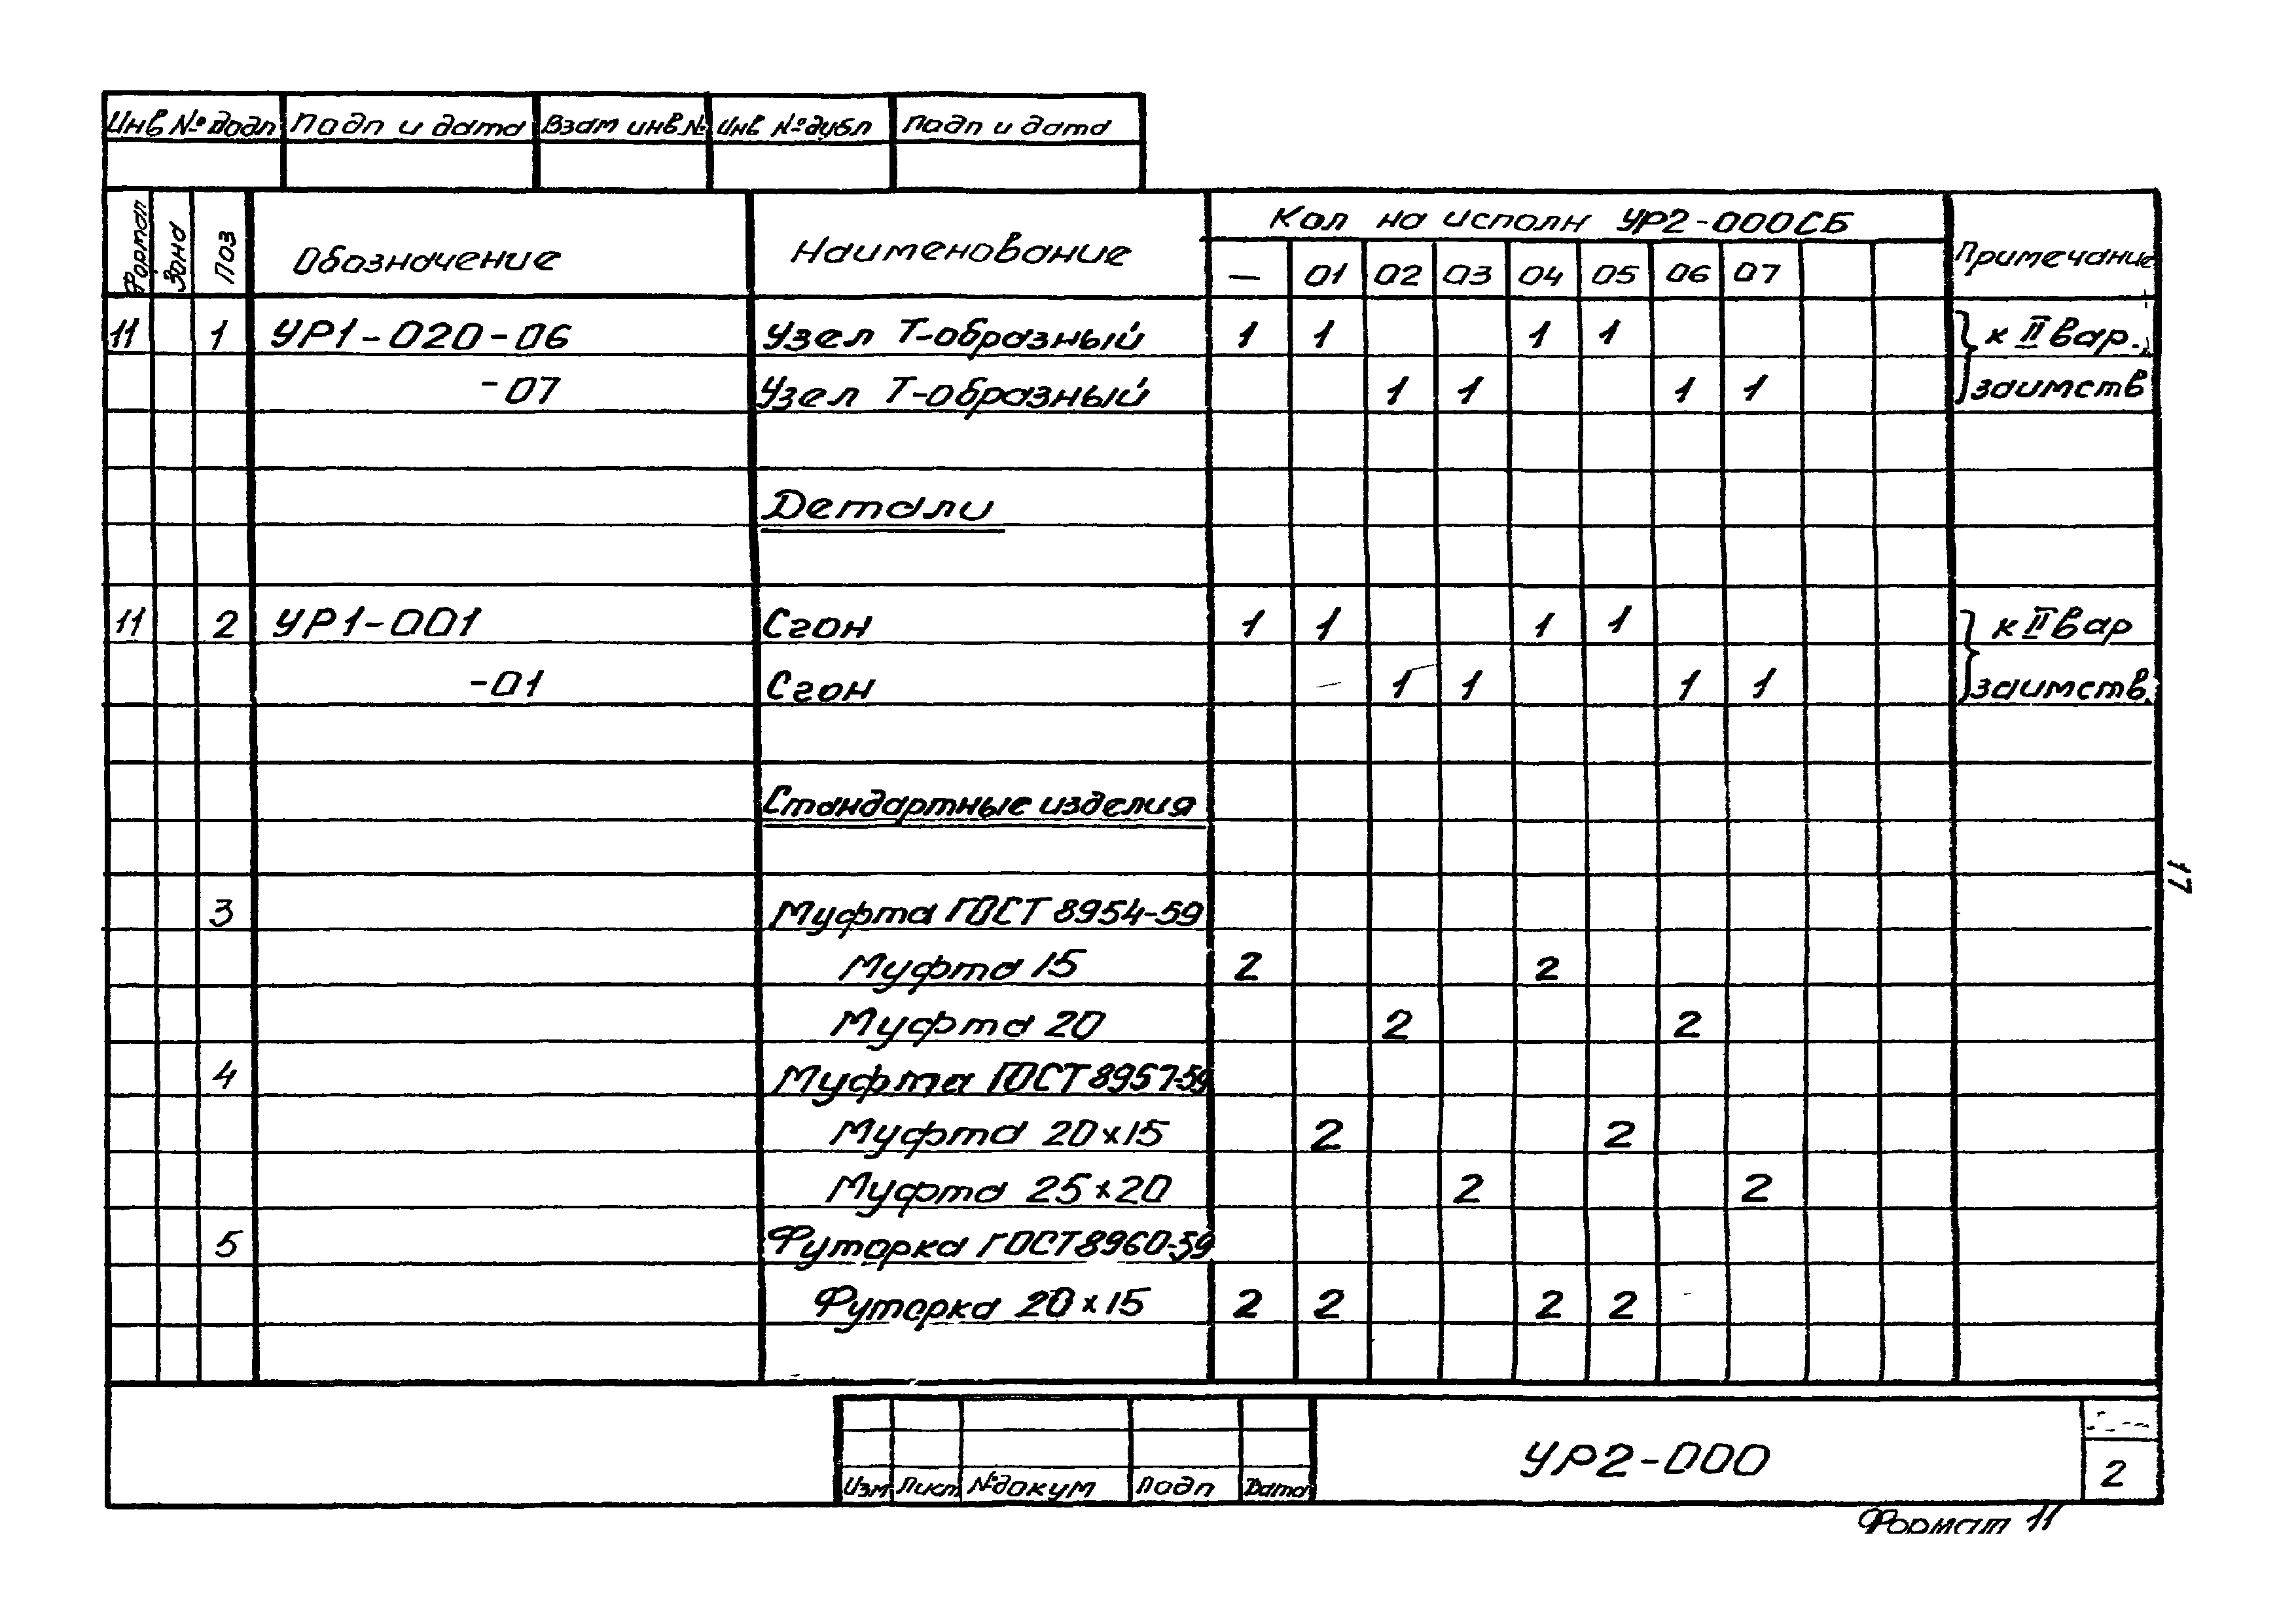 Инв № подл Подп и дата Взам инв № Инв № дубл Подп и дата
Формат Зона Поз Обозначение Наименование Кол на исполн УР2-000СБ Примечание
— 01 02 03 04 05 06 07
11 1 УР1-020-06 Узел Т-образный 1 1 1 1 } к II вар.,
-07 Узел Т-образный 1 1 1 1 заимств
Детали
11 2 УР1-001 Сгон 1 1 1 1 } к II вар
-01 Сгон 1 1 1 1 заимств.
Стандартные изделия
3 Муфта ГОСТ 8954-59
Муфта 15 2 2
Муфта 20 2 2
4 Муфта ГОСТ 8957-59
Муфта 20×15 2 2
Муфта 25×20 2 2
5 Футорка ГОСТ 8960-59
Футорка 20×15 2 2 2 2
17
Изм Лист № докум Подп Дата
УР2-000
2
Формат 11